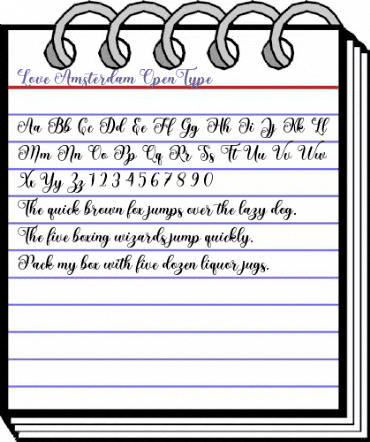 Love Amsterdam OpenType
Aa Bb Cc Dd Ee Ff Gg Hh Ii Jj Kk Ll
Mm Nn Oo Pp Qq Rr Ss Tt Uu Vv Ww
Xx Yy Zz 1 2 3 4 5 6 7 8 9 0
The quick brown fox jumps over the lazy dog.
The five boxing wizards jump quickly.
Pack my box with five dozen liquor jugs.